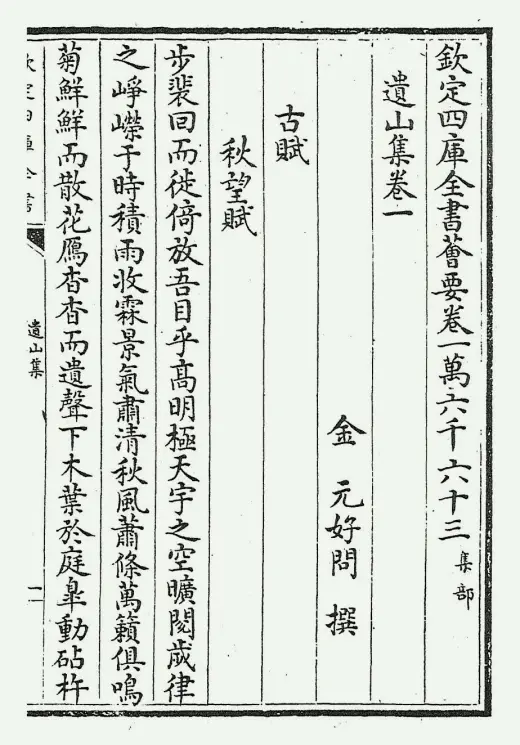 欽定四庫全書薈要卷一萬六千六十三 集部
遺山集卷一
金 元好問 撰
古賦
秋望賦
步裴回而徙倚放吾目乎高明極天宇之空曠閱歲律
之崢嶸于時積雨收霖景氣肅清秋風蕭條萬籟俱鳴
菊鮮鮮而散花鴈杳杳而遺聲下木葉於庭皐動砧杵
欽定四庫全書
遺山集
一